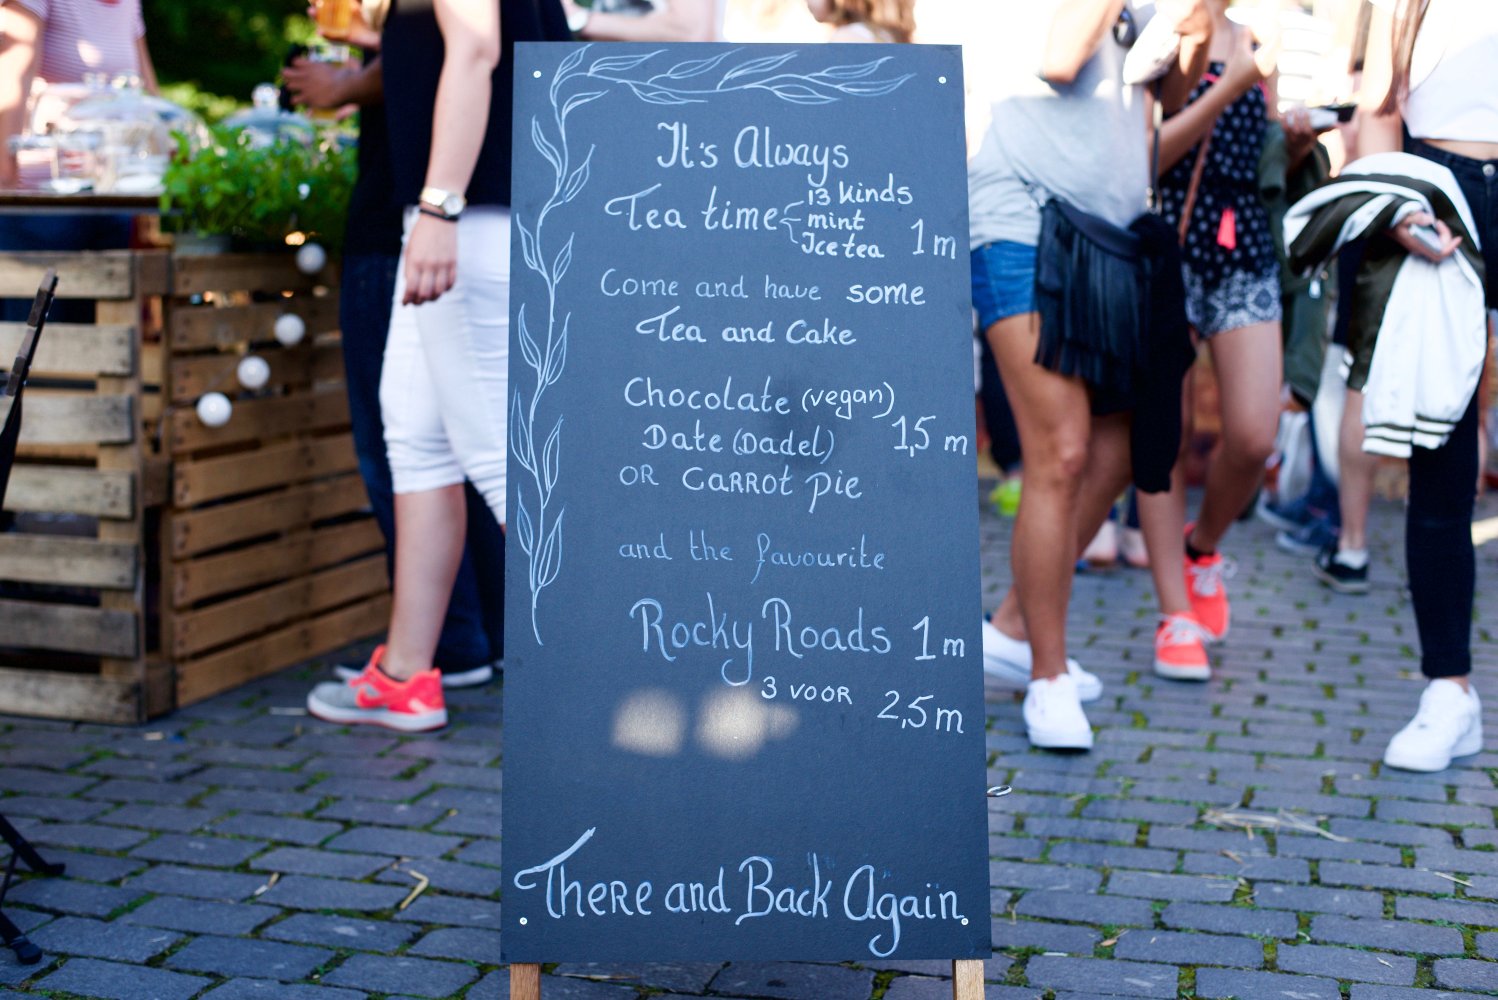 It's Always
Tea time 13 kinds
mint
Ice tea 1 m
Come and have some
Tea and Cake
Chocolate (vegan)
Date (Dadel) 1,5 m
OR CARROT pie
and the favourite
Rocky Roads 1 m
3 VOOR 2,5 m
There and Back Again